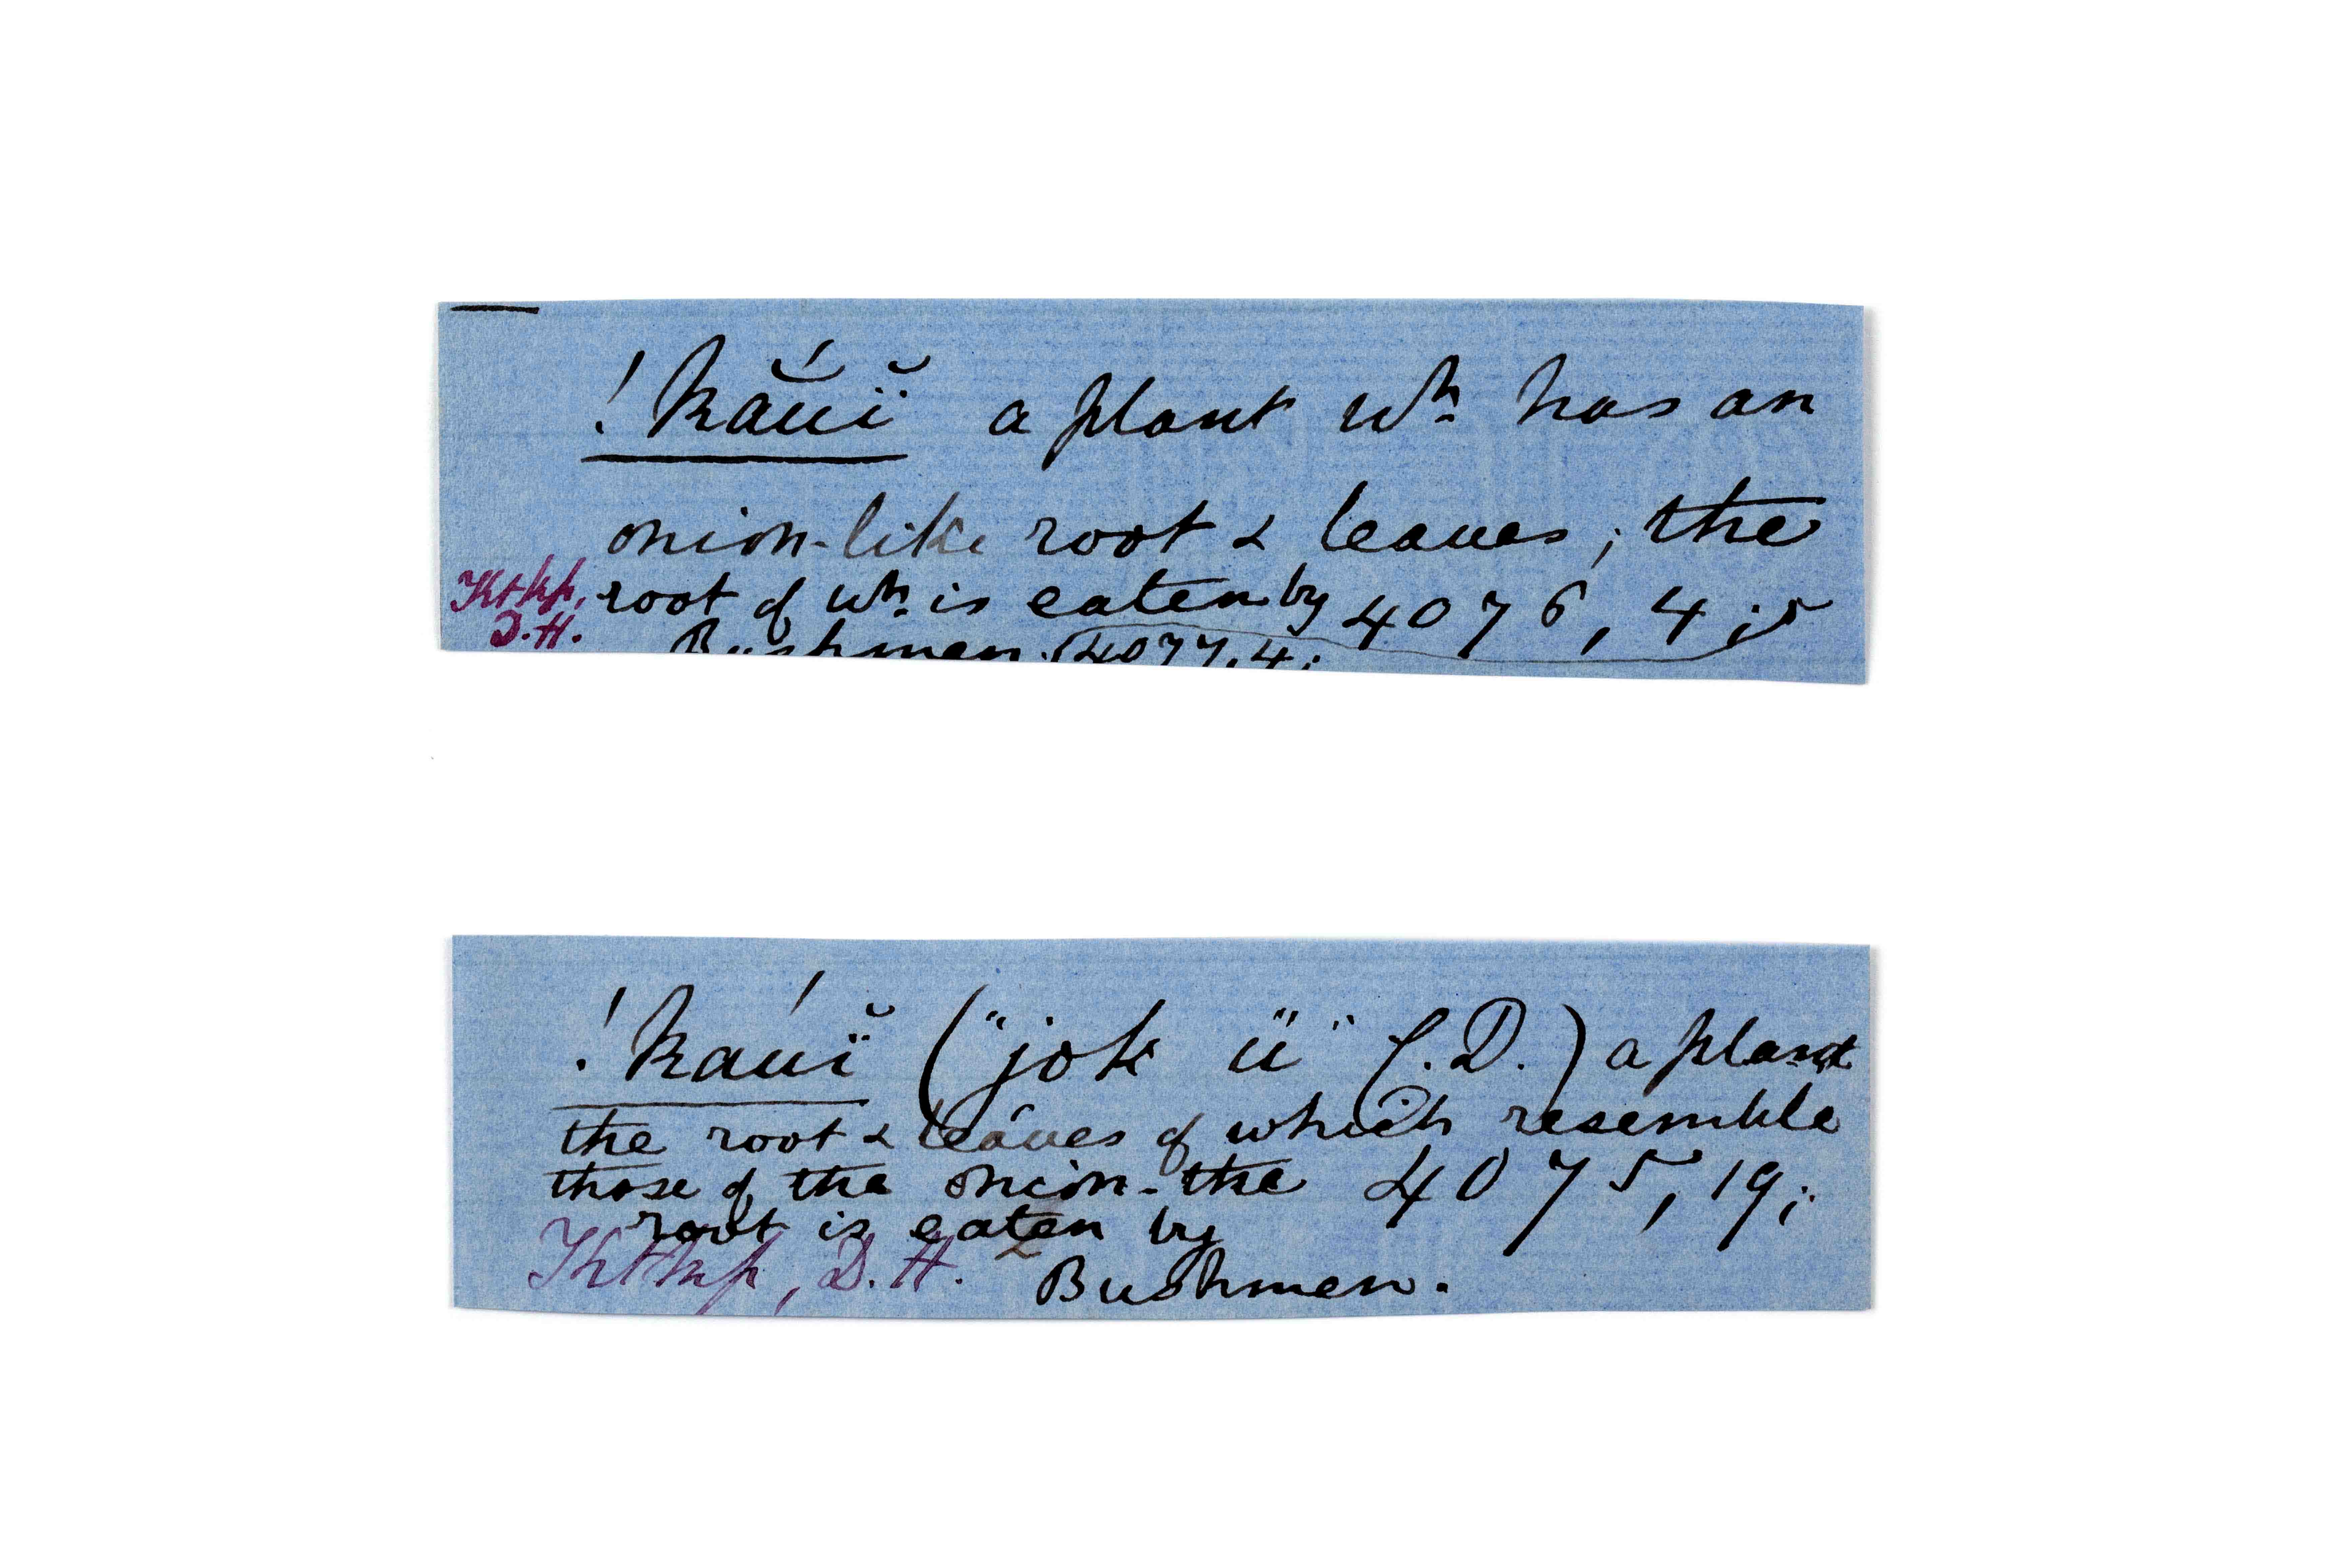 !kắuĭ̈ a plant wh has an
onion-like root & leaves; the
root of wh is eaten by 4076, 4; 5
Ktkp, D.H.
Bushmen. (4077, 4;
!káuĭ̈ ("jok üï" D.) a plant
the root & leaves of which resemble
those of the onion - the 4075, 19;
root is eaten by
Ktkp, D.H. Bushmen.